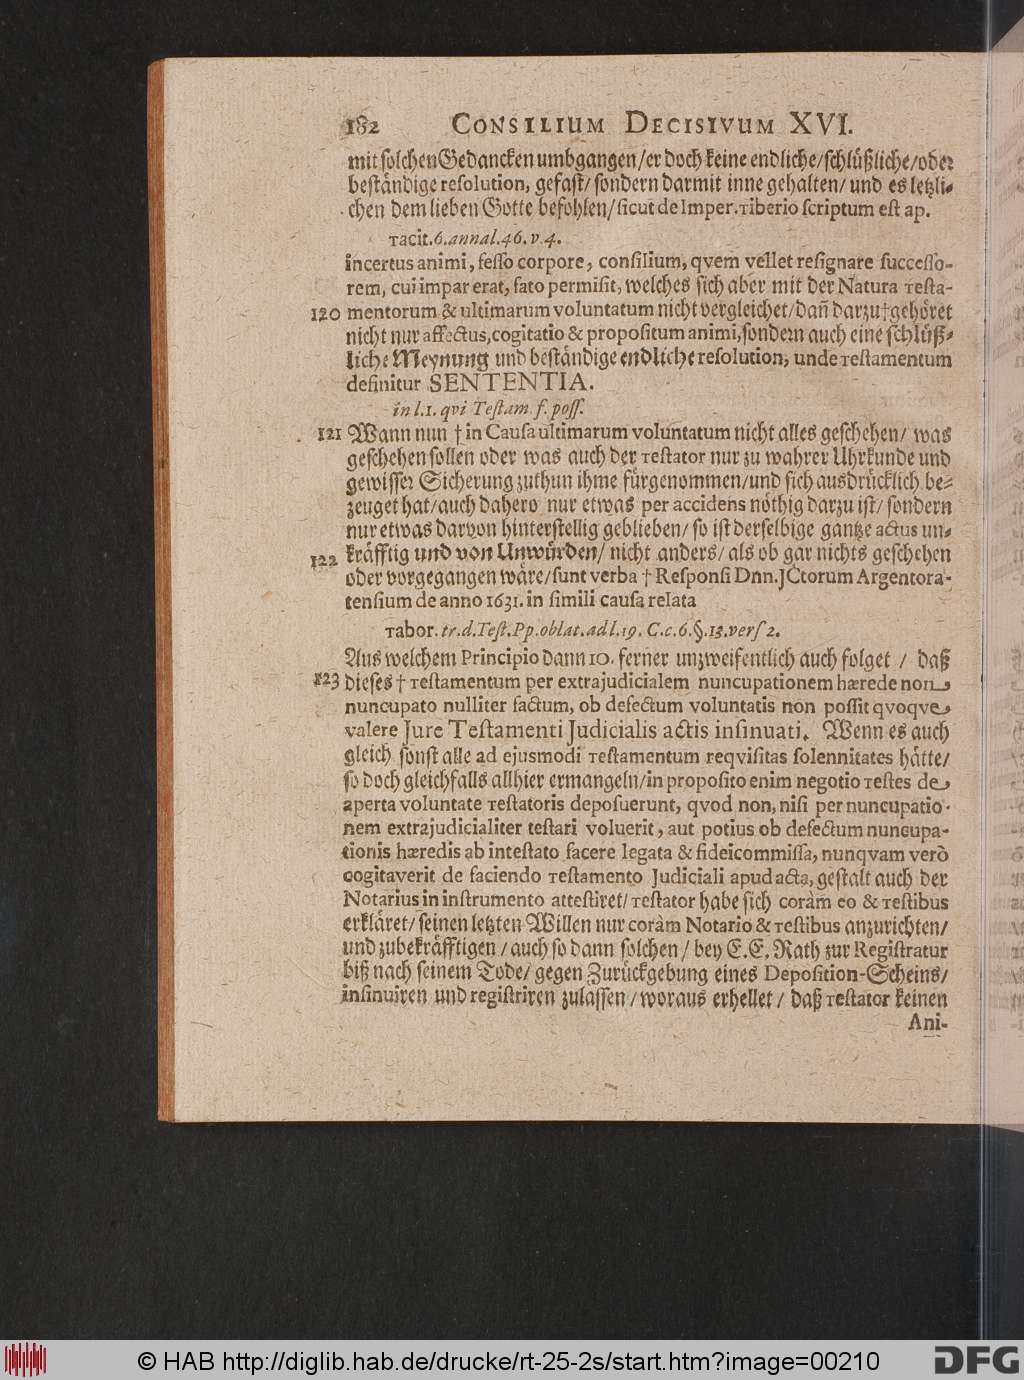 182 CONSILIUM DECISIVUM XVI.
mit solchen Gedancken umbgangen/er doch keine endliche/schlüßliche/oder
beständige resolution, gefast/ sondern darmit inne gehalten/ und es letzli-
chen dem lieben Gotte befohlen/ sicut de Imper. Tiberio scriptum est ap.
Tacit. 6. annal. 46. v. 4.
incertus animi, fesso corpore, consilium, qvem vellet resignare successo-
rem, cui impar erat, fato permisit, welches sich aber mit der Natura Testa-
120 mentorum & ultimarum voluntatum nicht vergleichet/ dañ darzu † gehöret
nicht nur affectus, cogitatio & propositum animi, sondern auch eine schlüß-
liche Meynung und beständige endliche resolution, unde Testamentum
definitur SENTENTIA.
in l. 1. qvi Testam. f. poss.
121 Wann nun † in Causa ultimarum voluntatum nicht alles geschehen/ was
geschehen sollen oder was auch der Testator nur zu wahrer Uhrkunde und
gewisser Sicherung zuthun ihme fürgenommen/und sich ausdrücklich be-
zeuget hat/auch dahero nur etwas per accidens nöthig darzu ist/ sondern
nur etwas darvon hinterstellig geblieben/ so ist derselbige gantze actus un-
kräfftig und von Unwürden/ nicht anders/ als ob gar nichts geschehen
122 oder vorgegangen wäre/ sunt verba † Responsi Dnn. JCtorum Argentora-
tensium de anno 1631. in simili causa relata
Tabor. tr. d. Test. Pp. oblat. ad l. 19. C. c. 6. §. 13. vers 2.
Aus welchem Principio dann 10. ferner unzweifentlich auch folget / daß
123 dieses † Testamentum per extrajudicialem nuncupationem hærede non
nuncupato nulliter factum, ob defectum voluntatis non possit qvoqve
valere Jure Testamenti Judicialis actis insinuati. Wenn es auch
gleich sonst alle ad ejusmodi Testamentum reqvisitas solennitates hätte/
so doch gleichfalls allhier ermangeln/ in proposito enim negotio Testes de
aperta voluntate Testatoris deposuerunt, qvod non, nisi per nuncupatio-
nem extrajudicialiter testari voluerit, aut potius ob defectum nuncupa-
tionis hæredis ab intestato facere legata & fideicommissa, nunqvam verò
cogitaverit de faciendo Testamento Judiciali apud acta, gestalt auch der
Notarius in instrumento attestiret/ Testator habe sich coràm eo & Testibus
erkläret/ seinen letzten Willen nur coràm Notario & Testibus anzurichten/
und zubekräfftigen / auch so dann solchen / bey E. E. Rath zur Registratur
biß nach seinem Tode/ gegen Zurückgebung eines Deposition-Scheins/
insinuiren und registriren zulassen / woraus erhellet / daß Testator keinen
Ani-
© HAB http://diglib.hab.de/drucke/rt-25-2s/start.htm?image=00210
DFG